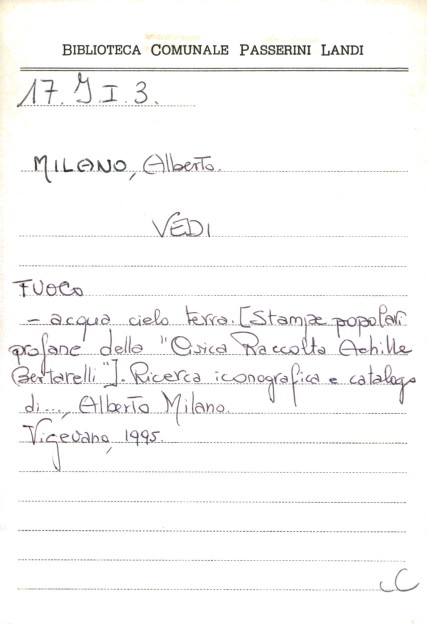 BIBLIOTECA COMUNALE PASSERINI LANDI
17. J. I. 3.
MILANO, Alberto.
VEDI
FUOCO
- acqua cielo terra. [Stampe popolari
profane della "Civica Raccolta Achille
Bertarelli"]. Ricerca iconografica e catalogo
di..., Alberto Milano.
Vigevano, 1995.